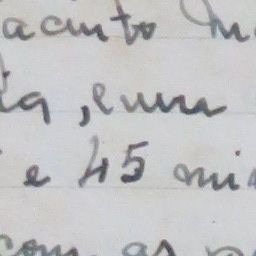 acinto M
ia, e um
e 45 mi
com as